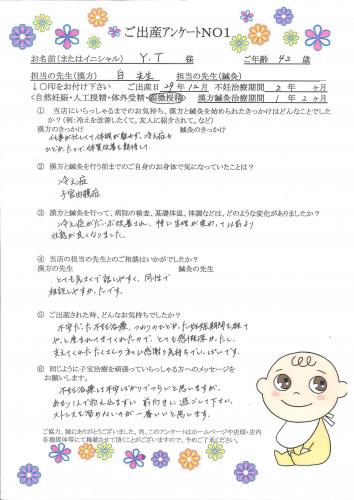 ご出産アンケートNO1
お名前(またはイニシャル) Y.T 様 ご年齢 42 歳
担当の先生(漢方) 白 先生 担当の先生(鍼灸)
↓○印をお付け下さい ご出産日 29年12月 不妊治療期間 2 年 ヶ月
<自然妊娠・人工授精・体外受精・顕微授精> 漢方鍼灸治療期間 1 年 2 ヶ月
① 当店にいらっしゃるまでのお気持ち、漢方と鍼灸を始められたきっかけはどんなことでした
か?(例:冷えを改善したくて。友人に紹介されて。など)
漢方のきっかけ 鍼灸のきっかけ
仕事が忙しくて体調が悪く、冷え症も
ひどかったので体質改善を期待して。
② 漢方と鍼灸を行う前までのご自身のお身体で気になっていたことは?
冷え症
子宮内膜症
③ 漢方と鍼灸を行って、病院の検査、基礎体温、体調などは、どのような変化がありましたか?
冷え症がだいぶ改善され、特に生理が変わって以前より
状態が良くなりました。
④ 当店の担当の先生とのご相談はいかがでしたか?
漢方の先生 鍼灸の先生
とても気さくで話しやすく、同性で
相談しやすかったです。
⑤ ご出産された時、どんなお気持ちでしたか?
不安だった不妊治療、つわりのひどかった妊娠期間を経て
やっと産まれてきてくれたので、とても感慨深かったし、
支えてくれたたくさんの方々に感謝の気持ちでいっぱいです。
⑥ 同じように子宝治療を頑張っていらっしゃる方へのメッセージを
お願いします。
不妊治療は不安ばかりでつらいと思いますが、
あまり1人で抱え込まずに前向きに過ごして下さい。
ストレスを溜めないのが一番いいと思います。
ご協力、誠にありがとうございました。尚、このアンケートはホームページや店頭・店内
各種媒体等にて掲載させて頂くことがございますので、予めご了承ください。